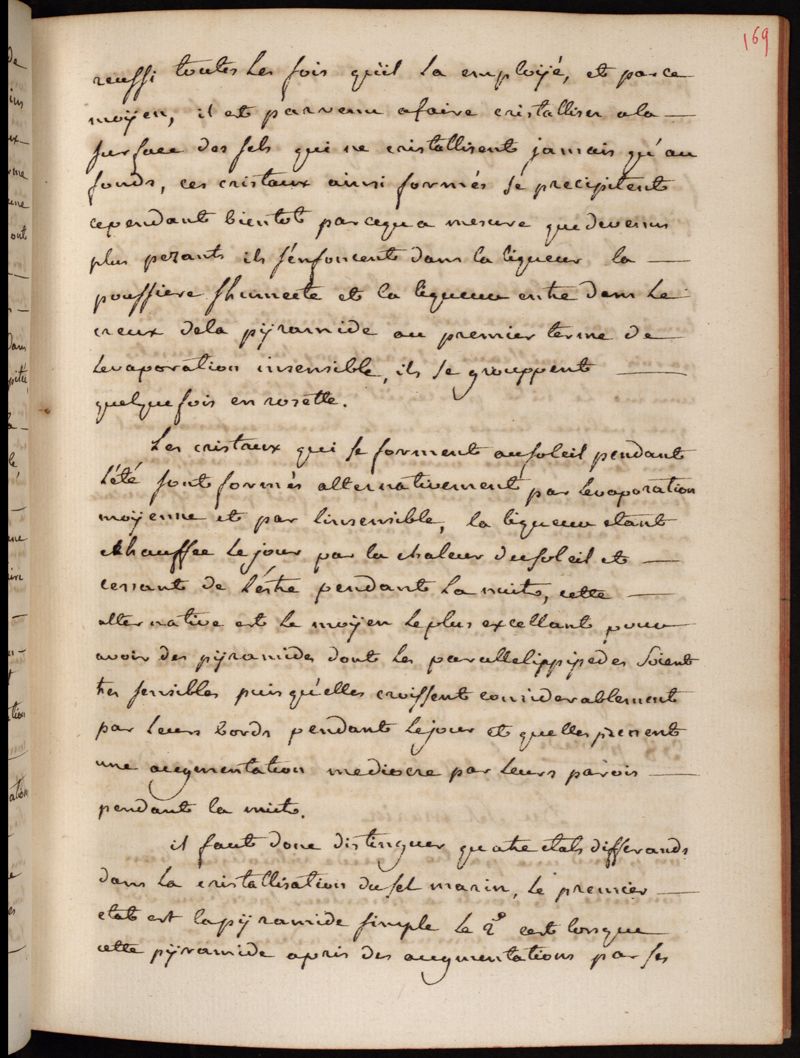 169
reussi toutes les fois qu'il la employé, et par ce
moÿen, il est parvenu a faire cristalliser a la —
surface des sels qui ne cristallisent jamais qu'au
fonds, ces cristaux ainsi formés se precipitent
cependant bientot parcequ a mesure que devenus
plus pezants ils s'enfoncent dans la liqueur la —
poussiere s'humecte et la liqueur entre dans le
creux de la pÿramide au premier terme de
levaporation insensible, ils se grouppent —
quelque fois en rosette.
Les cristaux qui se forment au soleil pendant
l'été sont formés alternativement par levaporation
moÿenne et par l'insensible, la liqueur etant
echauffée le jour par la chaleur du soleil et —
cessant de l'éstre pendant la nuit, cette —
alternative est le moÿen le plus excellant pour
avoir des pÿramides dont les parallelippipedes soient
tres sensibles puis qu'elles croissent considerablement
par leurs bords pendant le jour et quelles prenent
une augmentation mediocre par leurs parois —
pendant la nuit.
il faut donc distinguer quatre etats differands
dans la cristallisation du sel marin, le premier —
etat est la pÿramide simple le 2e cest lorsque
cette pÿramide apres des augmentations par ses